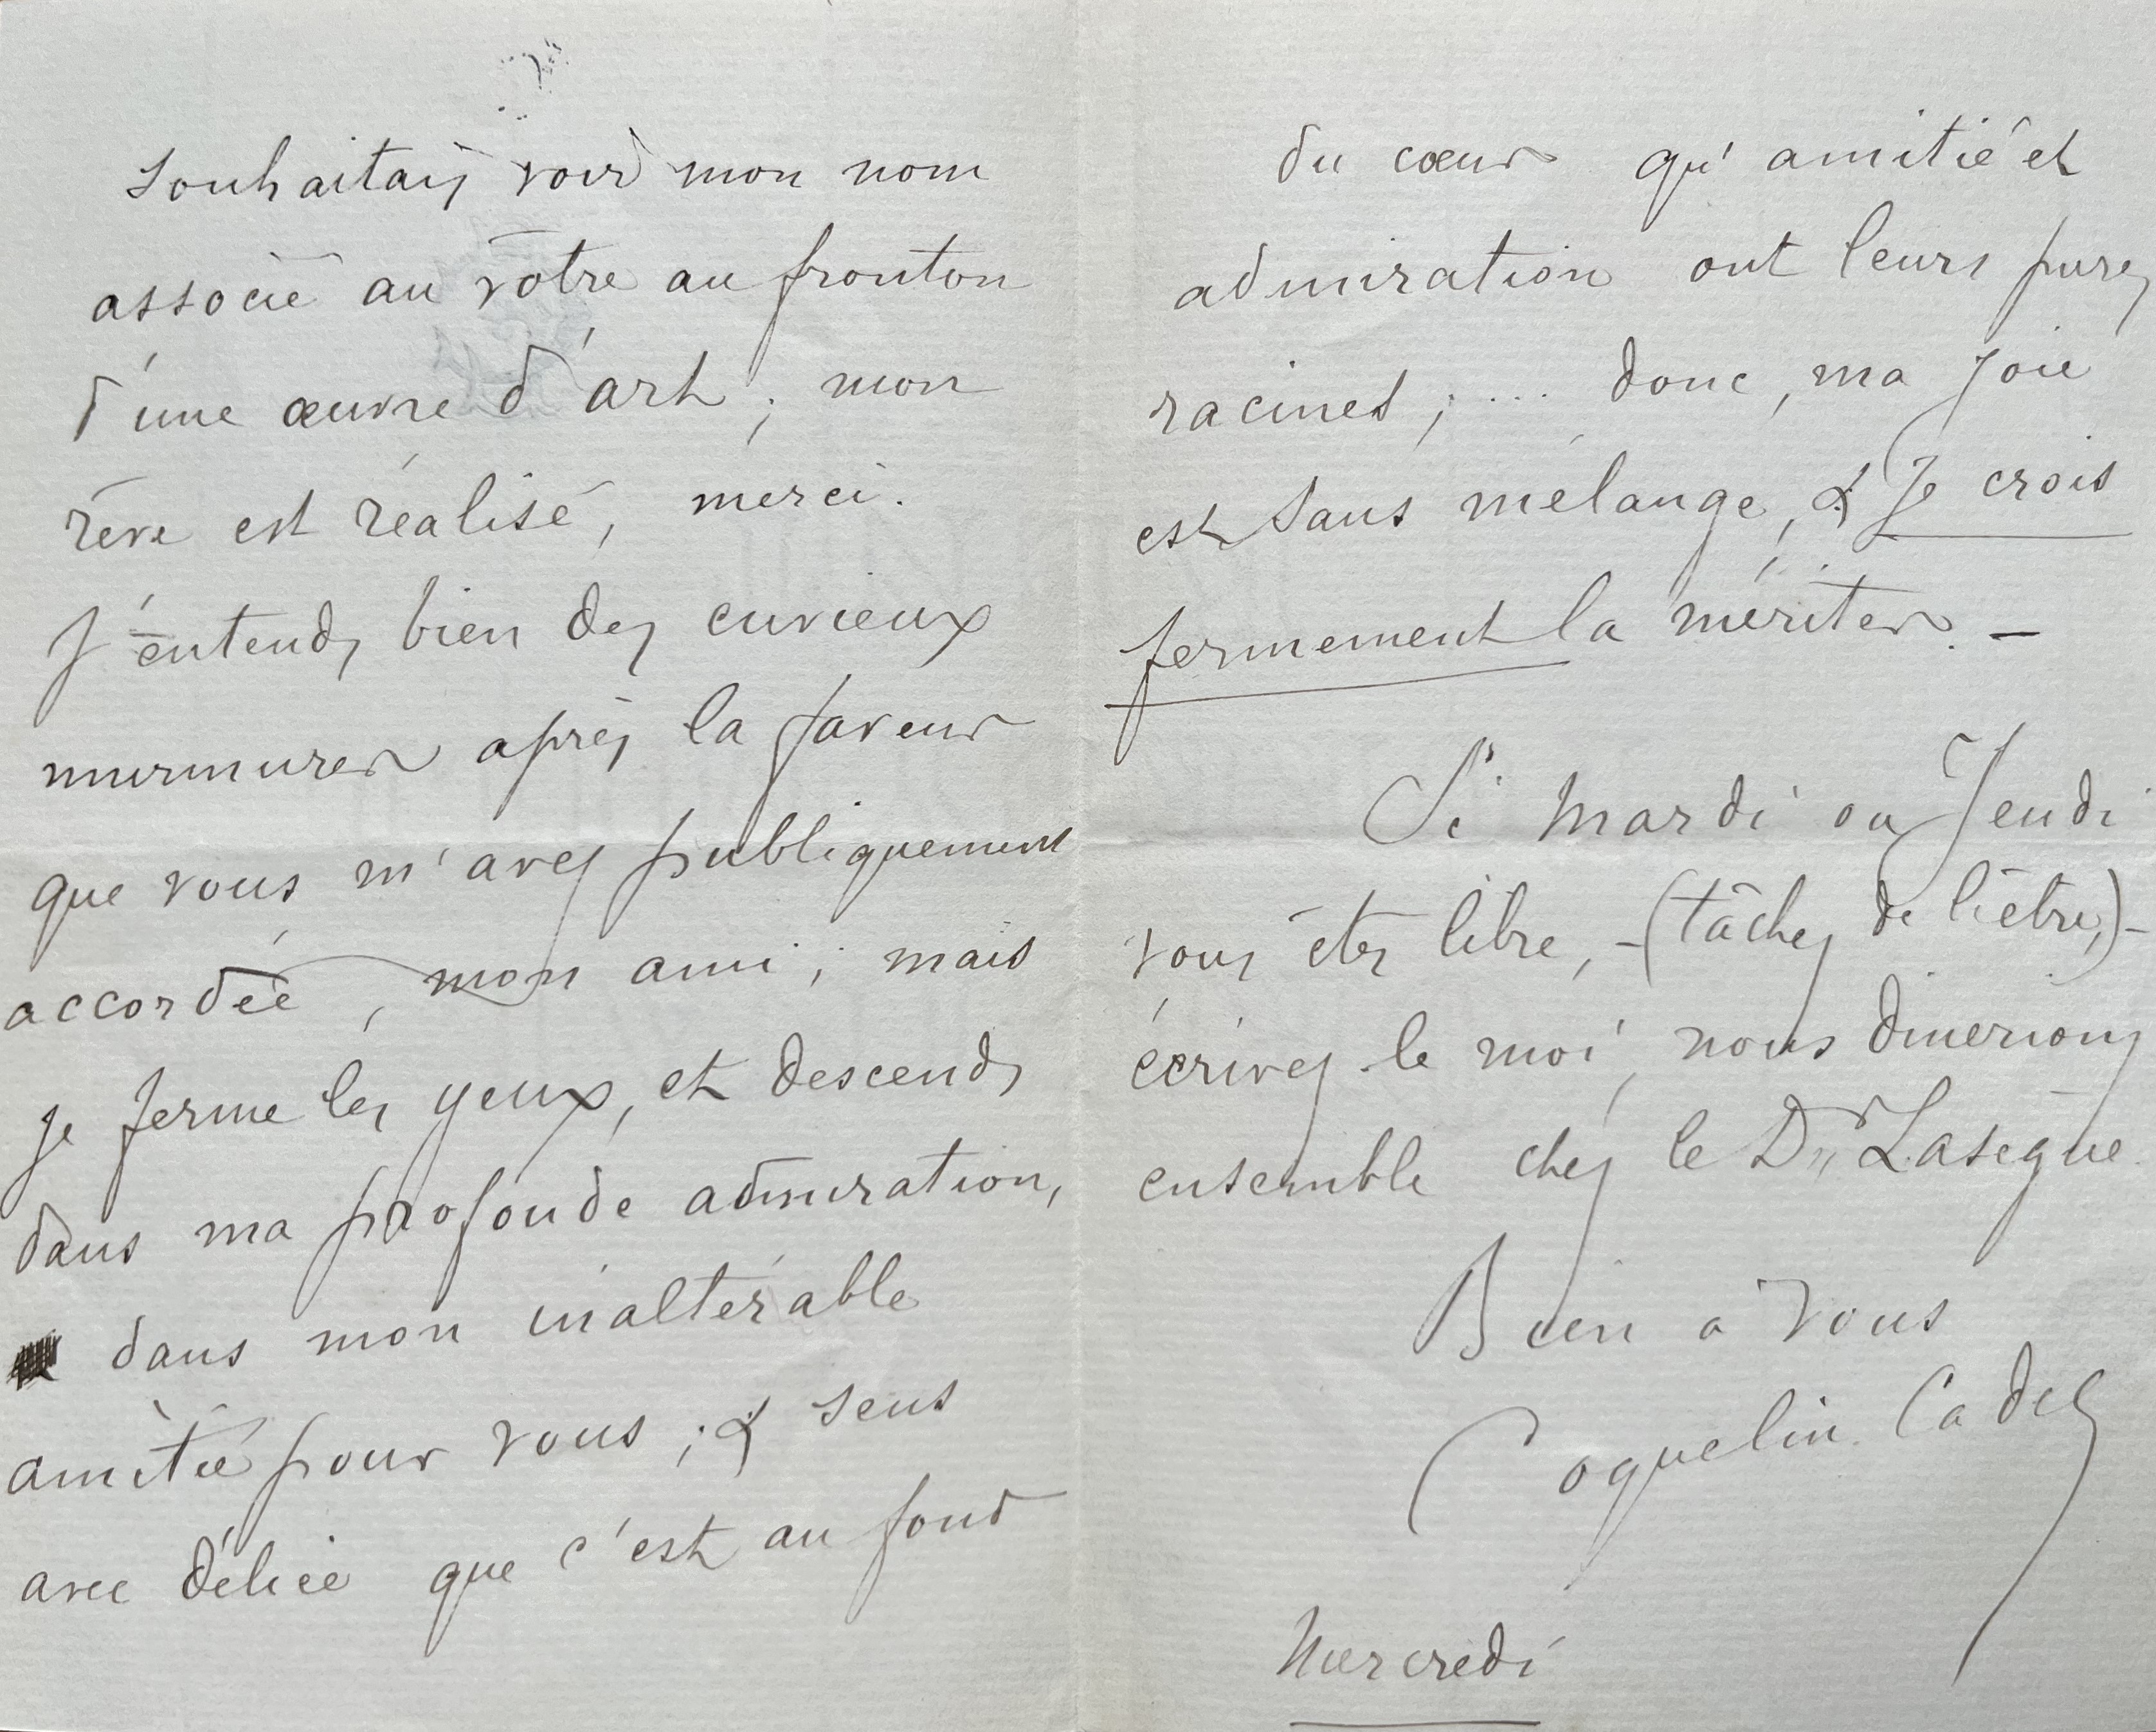 souhaitais voir mon nom
associé au vôtre au fronton
d'une œuvre d'art ; mon
rêve est réalisé, merci.
J'entends bien des curieux
murmurer après la faveur
que vous m'avez publiquement
accordée, mon ami ; mais
je ferme les yeux, et descends
dans ma profonde admiration,
dans mon inaltérable
amitié pour vous ; & sens
avec délice que c'est au fond
du cœur qu'amitié et
admiration ont leurs pures
racines ; ... donc, ma joie
est sans mélange, & je crois
fermement la mériter. —
Si Mardi ou Jeudi
vous êtes libre, - (tâchez de l'être,) -
écrivez le moi, nous dinerions
ensemble chez le Dr Lasègue
Bien à vous
Coquelin Cadet
Mercredi